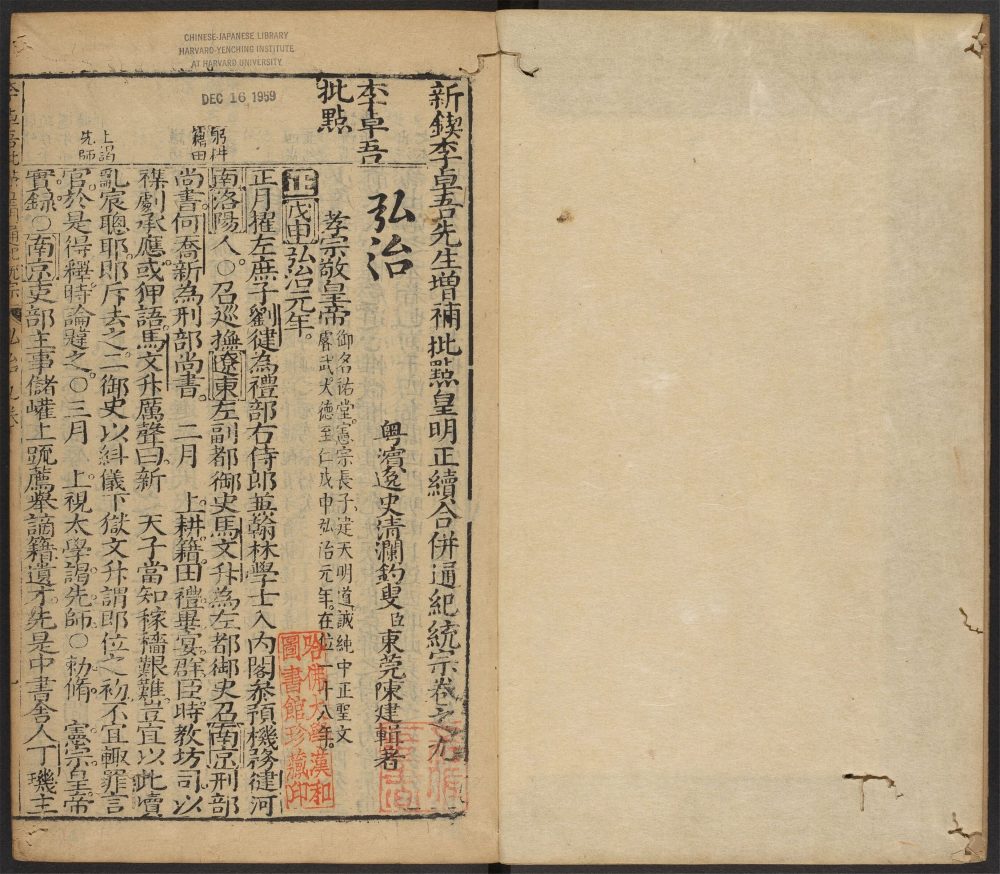 CHINESE-JAPANESE LIBRARY
HARVARD-YENCHING INSTITUTE
AT HARVARD UNIVERSITY
DEC 16 1959
新鍥李卓吾先生增補批點皇明正續合併通紀統宗卷之九
粵濱逸史清瀾釣叟臣東莞陳建輯著
李卓吾
批點
弘治
孝宗敬皇帝
御名祐堂憲宗長子建天明道誠純中正聖文
睿武大德至仁戊申弘治元年在位一十八年
正戊申弘治元年
正月擢左庶子劉健為禮部右侍郎並翰林學士入內閣叅預機務健河
南洛陽人○召巡撫遼東左副都御史馬文升為左都御史召南京刑部
尚書何喬新為刑部尚書 二月 上耕籍田禮畢宴群臣時教坊司以
襍劇承應或狎語馬文升厲聲曰新 天子當知稼穡艱難豈宜以此瀆
亂宸聰耶即斥去之二御史以糾儀下獄文升謂即位之初不宜輙罪言
官於是得釋時論韙之○三月 上視太學謁先師○勑脩 憲宗皇帝
實錄○南京吏部主事儲巏上疏薦舉謫籍遺才先是中書舍人丁璣主
躬耕
籍田
上謁
先師
哈佛大學漢和
圖書館珍藏印